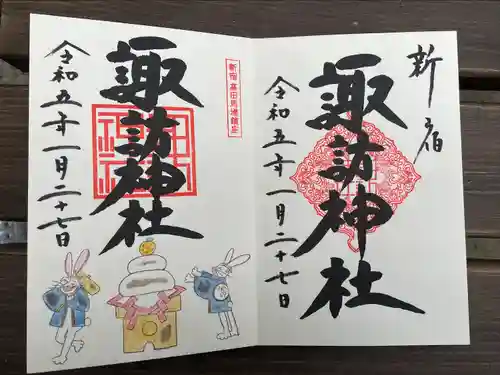 新宿
諏訪神社
令和五年一月二十七日
新宿 高田馬場鎮座
諏訪神社
令和五年一月二十七日